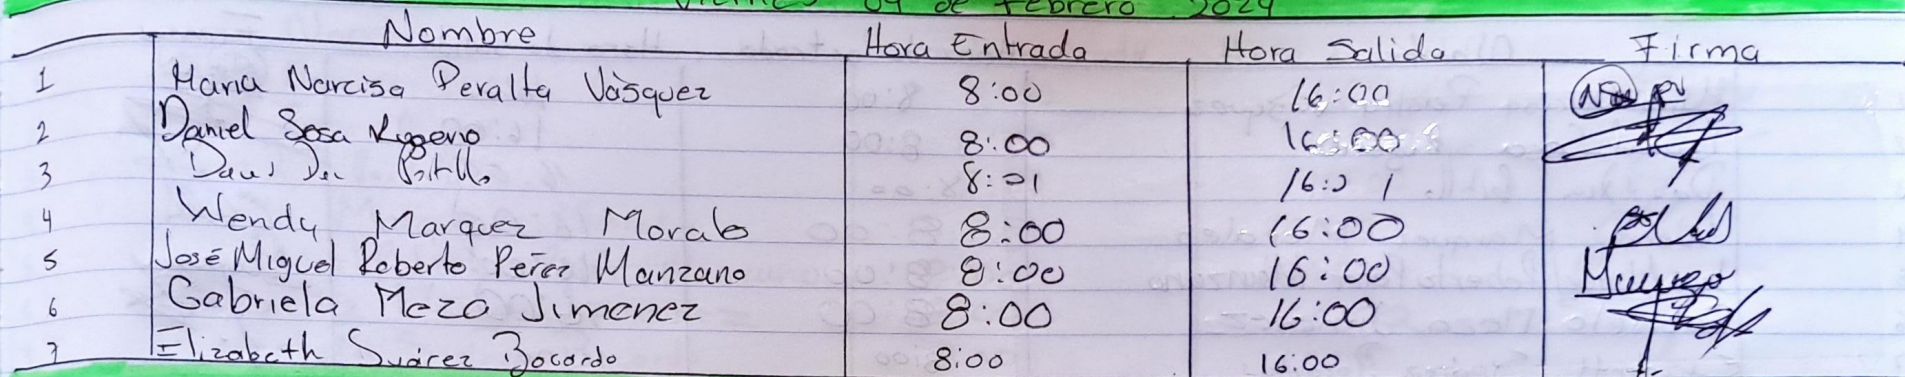 Viernes 09 de febrero 2024
Nombre Hora Entrada Hora Salida Firma
1 Maria Narcisa Peralta Vàsquez 8:00 16:00
2 Daniel Sosa 8:00 16:00
3 8:01 16:01
4 Wendy Marquez Morales 8:00 16:00
5 José Miguel Roberto Peñez Manzano 8:00 16:00
6 Gabriela Meza Jimenez 8:00 16:00
7 Elizabeth Suárez Bocardo 8:00 16:00